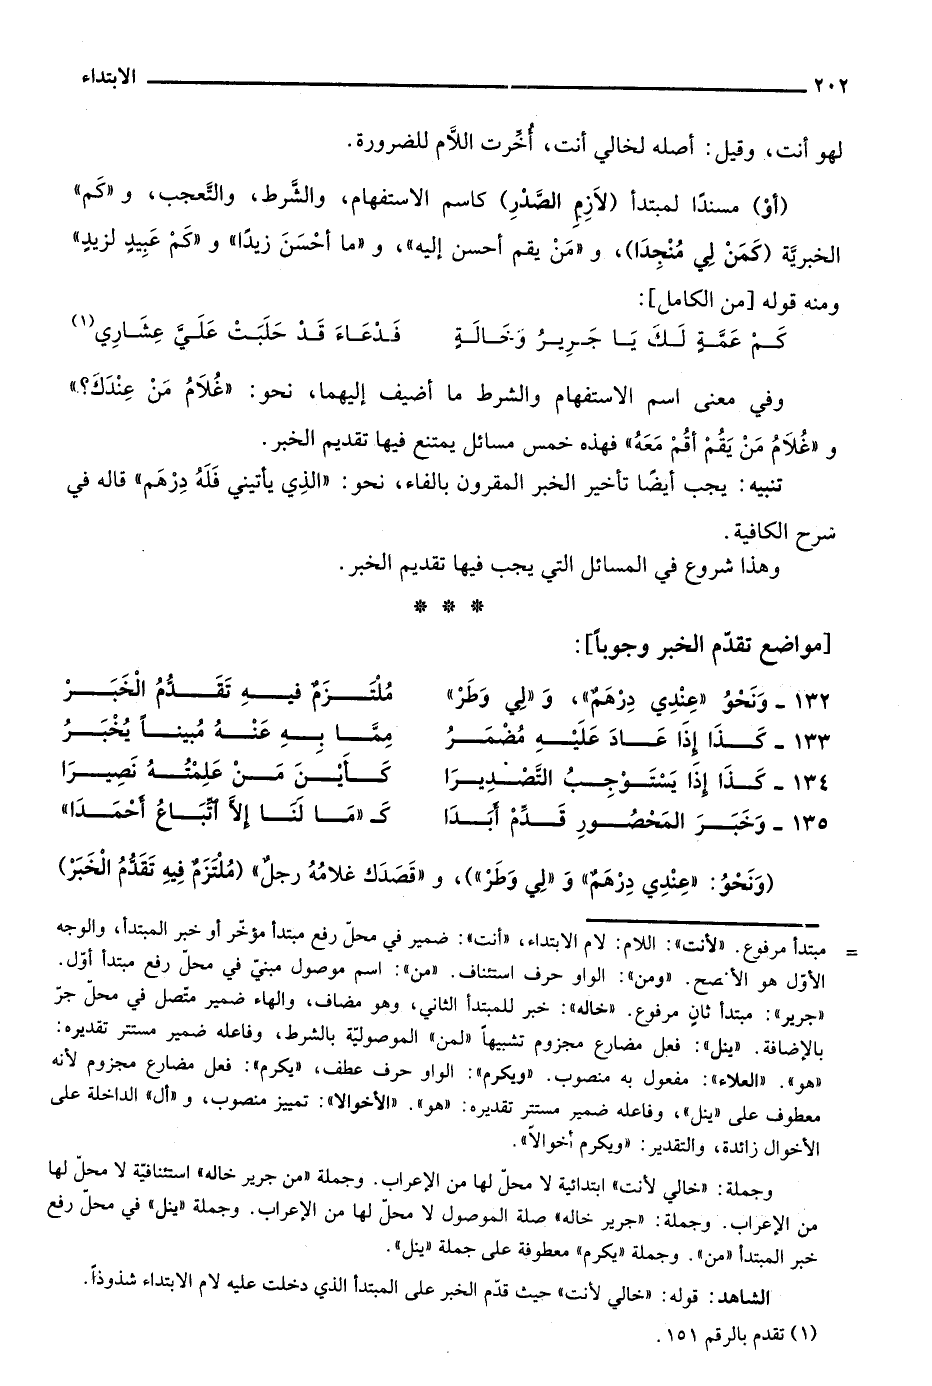 ٢٠٢ الابتداء
لهو أنت، وقيل: أصله لخالي أنت، أُخِّرت اللَّام للضرورة.
(أوْ) مسندًا لمبتدأ (لاَزِمِ الصَّدْرِ) كاسم الاستفهام، والشَّرط، والتَّعجب، و «كَم»
الخبريَّة (كَمَنْ لِي مُنْجِدَا)، و «مَنْ يقم أحسن إليه»، و «ما أحْسَنَ زيدًا» و «كَمْ عَبِيدٍ لزيدٍ»
ومنه قوله [من الكامل]:
كَـمْ عَمَّـةٍ لَـكَ يَـا جَـرِيـرُ وَخَـالَـةٍ فَـدْعَـاءَ قَـدْ حَلَبَـتْ عَلَـيَّ عِشَـارِي(١)
وفي معنى اسم الاستفهام والشرط ما أضيف إليهما، نحو: «غُلَامُ مَنْ عِنْدَكَ؟»
و «غُلَامُ مَنْ يَقُمْ أقُمْ مَعَهُ» فهذه خمس مسائل يمتنع فيها تقديم الخبر.
تنبيه: يجب أيضًا تأخير الخبر المقرون بالفاء، نحو: «الذِي يأتيني فَلَهُ دِرْهَم» قاله في
شرح الكافية.
وهذا شروع في المسائل التي يجب فيها تقديم الخبر.
* * *
[مواضع تقدّم الخبر وجوباً]:
١٣٢ ـ وَنَحْوُ «عِنْدِي دِرْهَمٌ»، وَ «لِي وَطَرْ» مُلْتَـــزَمٌ فيـــهِ تَقَـــدُّمُ الْخَبَـــرْ
١٣٣ ـ كَـــذَا إِذَا عَـــادَ عَلَيْـــهِ مُضْمَـــرُ مِمَّـــا بِـــهِ عَنْـــهُ مُبِينـــاً يُخْبَـــرُ
١٣٤ ـ كَـــذَا إِذَا يَسْتَـــوْجِـــبُ التَّصْـــدِيـــرَا كَـــأَيْـــنَ مَـــنْ عَلِمْتُـــهُ نَصِيـــرَا
١٣٥ ـ وَخَبَـــرَ المَحْصُـــورِ قَـــدِّمْ أَبَـــدَا كَـ «مَـــا لَنَـــا إِلاَّ اتِّبَـــاعُ أَحْمَـــدَا»
(وَنَحْوُ: «عِنْدِي دِرْهَمٌ» وَ «لِي وَطَرْ»)، و «قَصَدَك غلامُهُ رجلٌ» (مُلْتَزَمٌ فِيهِ تَقَدُّمُ الْخَبَرْ)
= مبتدأ مرفوع. «لأنت»: اللام: لام الابتداء، «أنت»: ضمير في محلّ رفع مبتدأ مؤخّر أو خبر المبتدأ، والوجه
الأوّل هو الأصح. «ومن»: الواو حرف استئناف. «من»: اسم موصول مبنيّ في محلّ رفع مبتدأ أوّل.
«جرير»: مبتدأ ثانٍ مرفوع. «خاله»: خبر للمبتدأ الثاني، وهو مضاف، والهاء ضمير متّصل في محلّ جرّ
بالإضافة. «ينل»: فعل مضارع مجزوم تشبيهاً «لمن» الموصوليّة بالشرط، وفاعله ضمير مستتر تقديره:
«هو». «العلاء»: مفعول به منصوب. «ويكرم»: الواو حرف عطف، «يكرم»: فعل مضارع مجزوم لأنه
معطوف على «ينل»، وفاعله ضمير مستتر تقديره: «هو». «الأخوالا»: تمييز منصوب، و «أل» الداخلة على
الأخوال زائدة، والتقدير: «ويكرم أخوالاً».
وجملة: «خالي لأنت» ابتدائية لا محلّ لها من الإعراب. وجملة «من جرير خاله» استئنافيّة لا محلّ لها
من الإعراب. وجملة: «جرير خاله» صلة الموصول لا محلّ لها من الإعراب. وجملة «ينل» في محلّ رفع
خبر المبتدأ «من». وجملة «يكرم» معطوفة على جملة «ينل».
الشاهد: قوله: «خالي لأنت» حيث قدّم الخبر على المبتدأ الذي دخلت عليه لام الابتداء شذوذاً.
(١) تقدم بالرقم ١٥١.